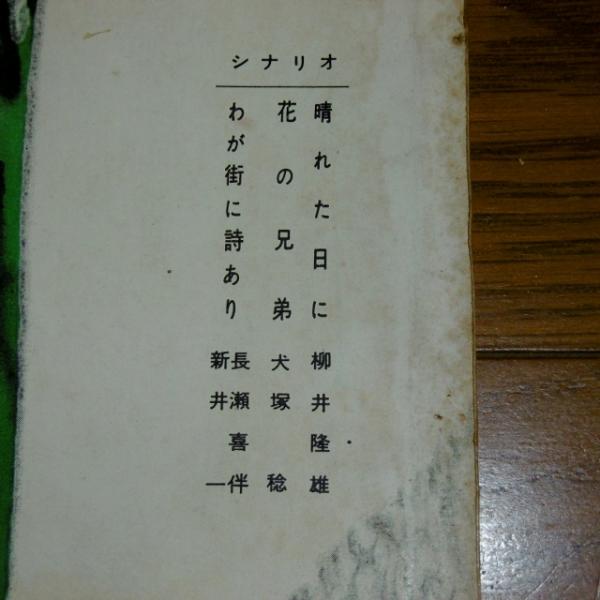 シナリオ
晴れた日に 柳井隆雄
花の兄弟 犬塚稔
わが街に詩あり 長瀬喜伴
新井一